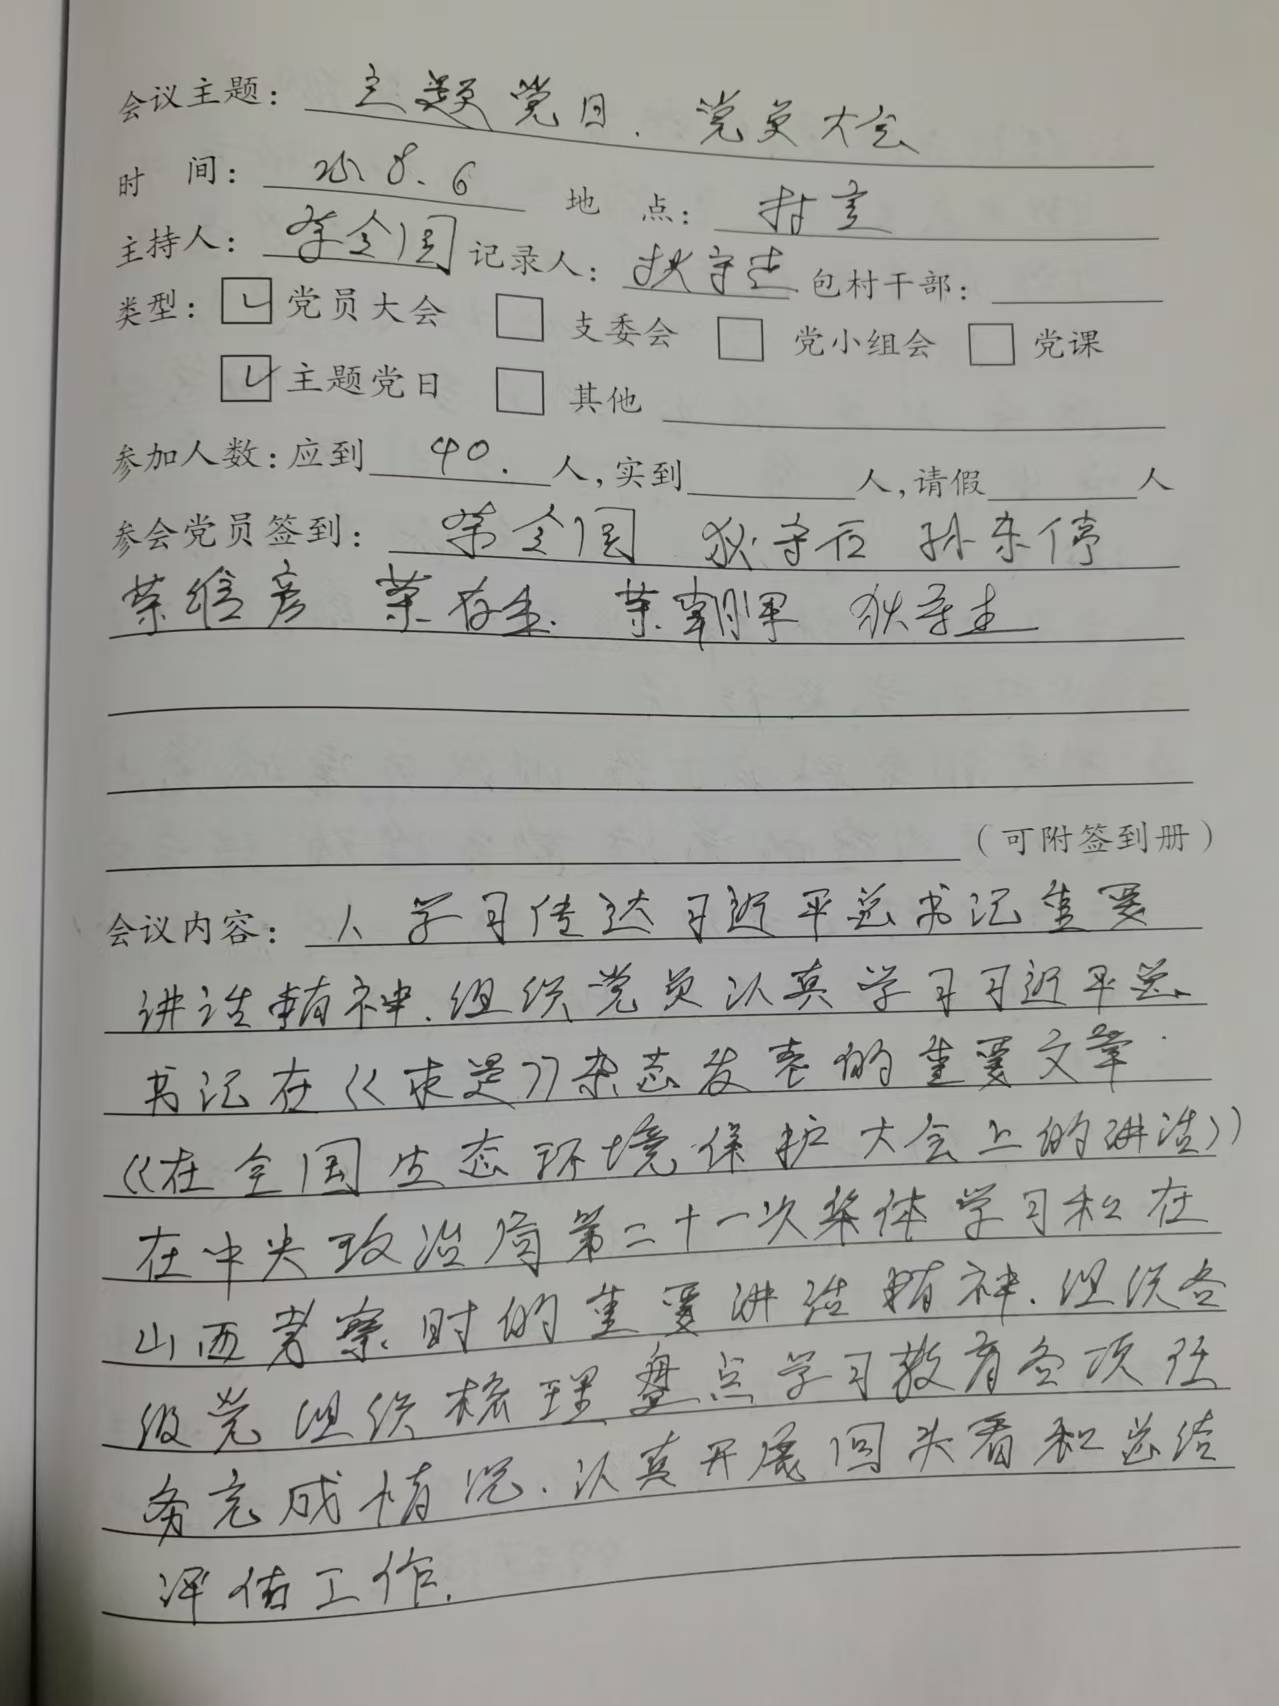 会议主题：主题党日．党员大会
时 间：25.8.6 地 点：村室
主持人：荣全国 记录人：狄守志 包村干部：
类型：党员大会 支委会 党小组会 党课
主题党日 其他
参加人数：应到 40. 人，实到 人，请假 人
参会党员签到：荣全国 狄守石 孙东停
荣信彦 荣存生． 荣 狄守志
（可附签到册）
会议内容：1、学习传达习近平总书记重要
讲话精神．组织党员认真学习习近平总
书记在《求是》杂志发表的重要文章
《在全国生态环境保护大会上的讲话》
在中央政治局第二十一次集体学习和在
山西考察时的重要讲话精神．组织各
级党组织梳理盘点学习教育各项任
务完成情况．认真开展回头看和总结
评估工作．